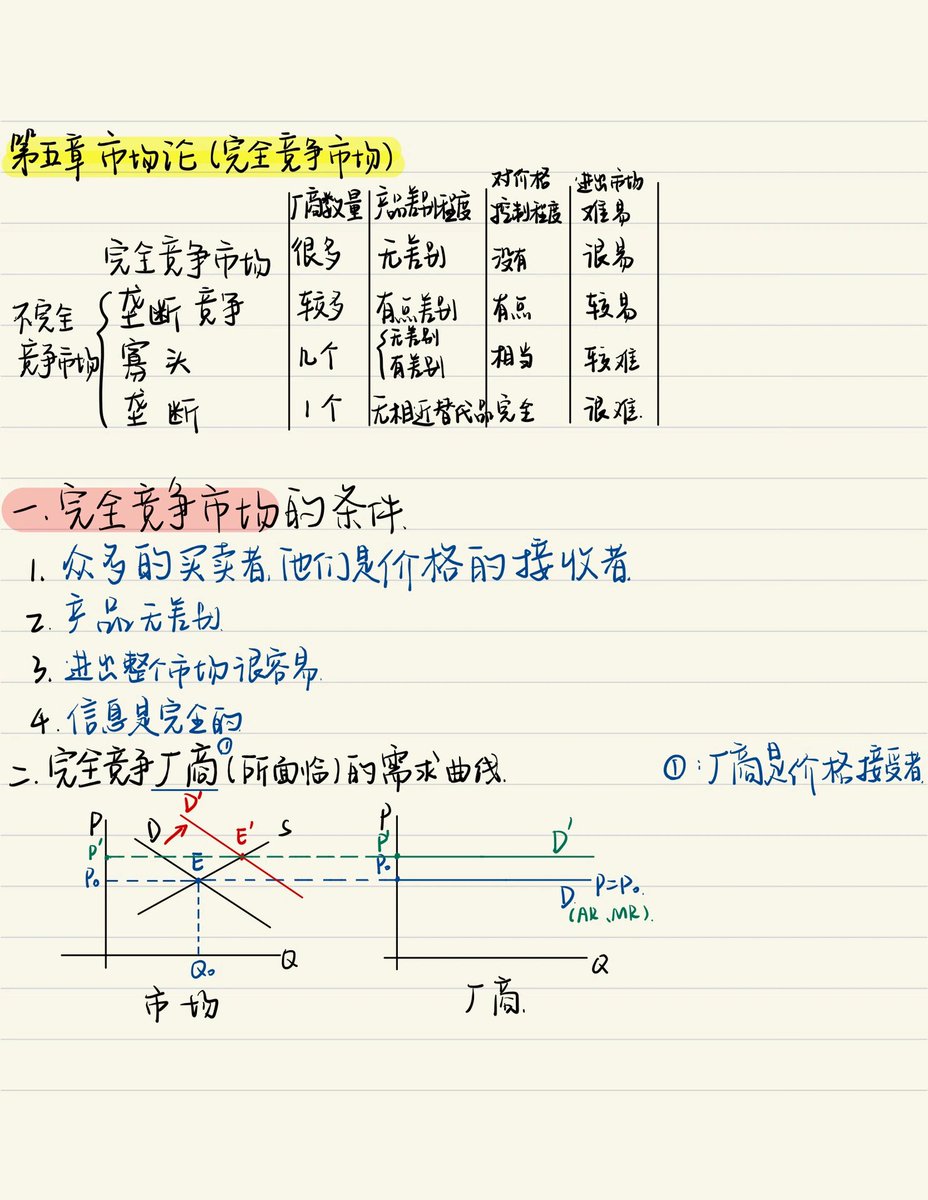 第五章 市场论 (完全竞争市场)
厂商数量 产品差别程度 对价格控制程度 进出市场难易
完全竞争市场 很多 无差别 没有 很易
不完全竞争市场
垄断竞争 较多 有点差别 有点 较易
寡头 几个 无差别 有差别 相当 较难
垄断 1个 无相近替代品 完全 很难.
一. 完全竞争市场的条件.
1. 众多的买卖者,他们是价格的接收者.
2. 产品无差别.
3. 进出整个市场很容易.
4. 信息是完全的
二. 完全竞争厂商①(所面临)的需求曲线. ①:厂商是价格接受者.
P D D' E' S P' E P₀ Q₀ Q
市场
P P' P₀ D' D P=P₀. (AR、MR). Q
厂商.